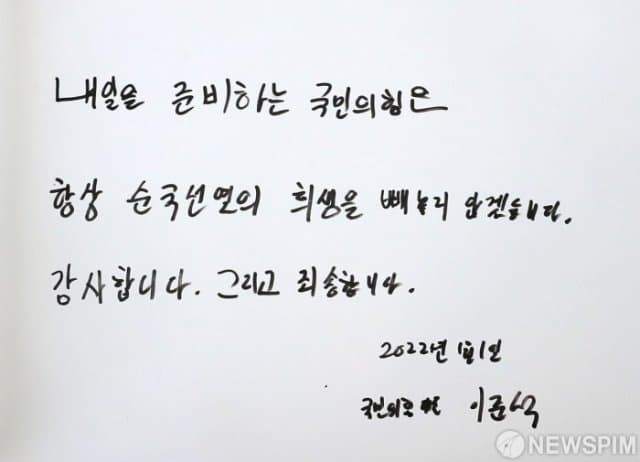 내일을 준비하는 국민의힘은
항상 순국선열의 희생을 빼놓지 않겠습니다.
감사합니다. 그리고 죄송합니다.
2022년 1월 1일
국민의힘 이준석
NEWSPIM